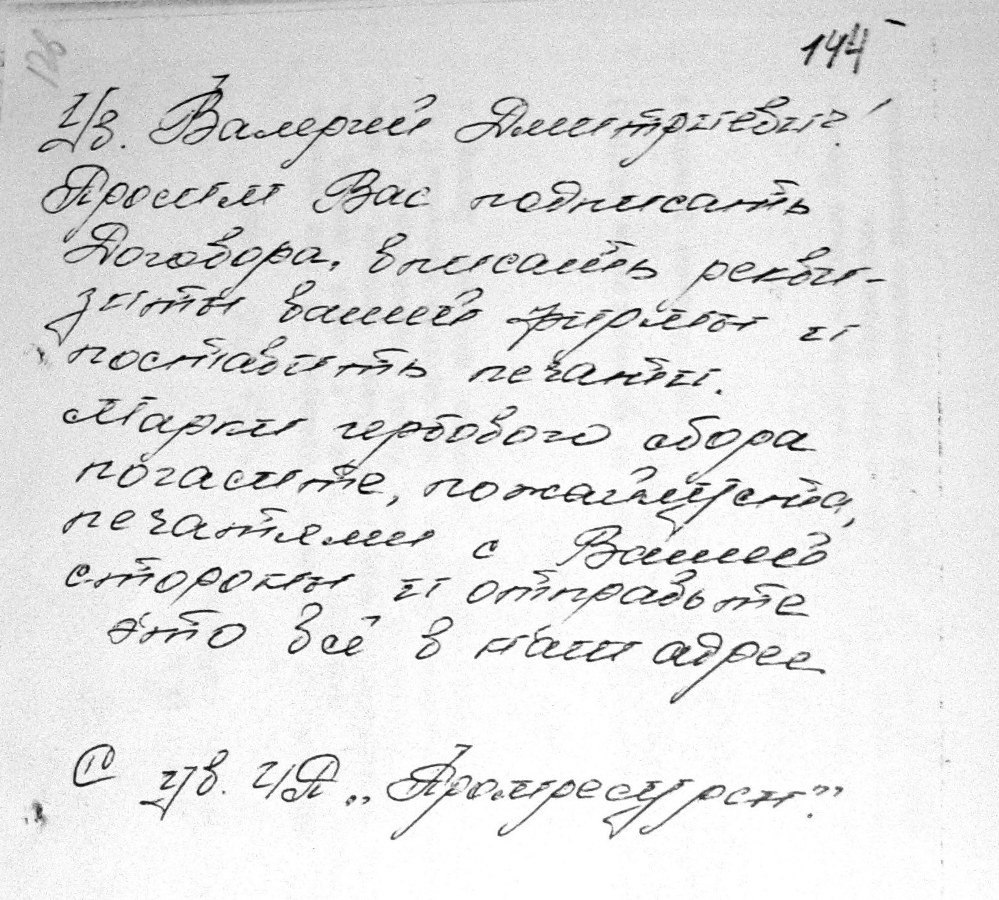 126
144
Ув. Валерий Дмитриевич!
Просим Вас подписать
Договора, вписать рекви-
зиты вашей фирмы и
поставить печати.
Марки гербового сбора
погасите, пожайлуста,
печатями с Вашей
стороны и отправьте
это всё в наш адрес
С ув. ЧП „Промресурсы"